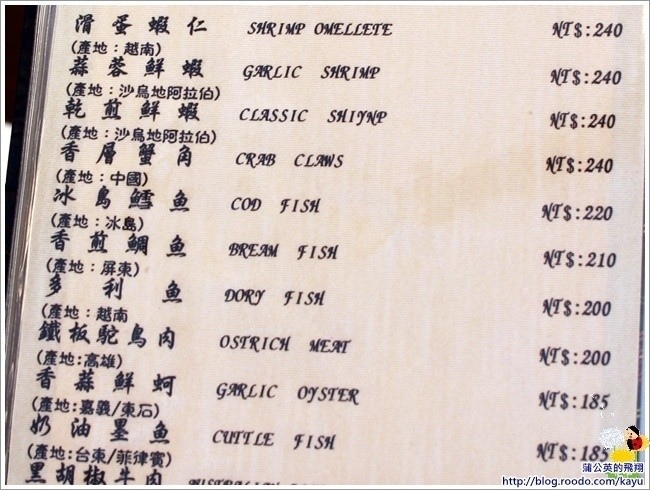 滑蛋蝦仁 SHRIMP OMELLETE NT$:240
(產地：越南)
蒜蓉鮮蝦 GARLIC SHRIMP NT$:240
(產地：沙烏地阿拉伯)
乾煎鮮蝦 CLASSIC SHIYNP NT$:240
(產地：沙烏地阿拉伯)
香層蟹角 CRAB CLAWS NT$:240
(產地：中國)
冰島鱈魚 COD FISH NT$:220
(產地：冰島)
香煎鯛魚 BREAM FISH NT$:210
(產地：屏東)
多利魚 DORY FISH NT$:200
(產地：越南
鐵板駝鳥肉 OSTRICH MEAT NT$:200
(產地:高雄)
香蒜鮮蚵 GARLIC OYSTER NT$:185
(產地:嘉義/東石)
奶油墨魚 CUTTLE FISH NT$:185
(產地:台東/菲律賓)
黑胡椒牛肉
蒲公英的飛翔
http://blog.roodo.com/kayu